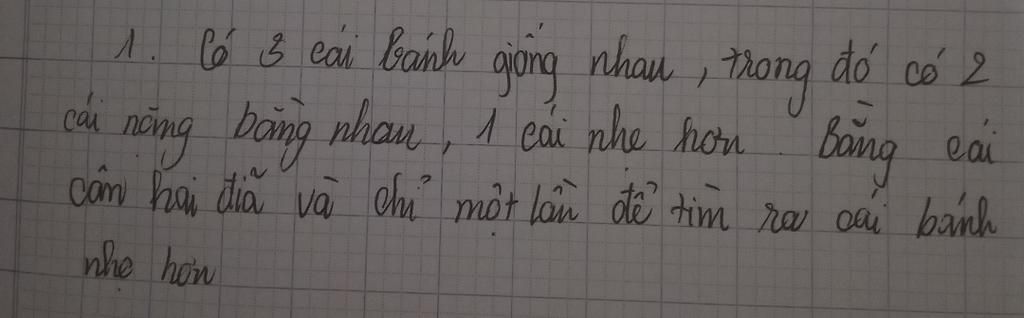 1. Có 3 cái bánh giống nhau, trong đó có 2
cái nặng bằng nhau, 1 cái nhẹ hơn. Bằng cái
cân hai đĩa và chỉ một lần để tìm ra cái bánh
nhẹ hơn